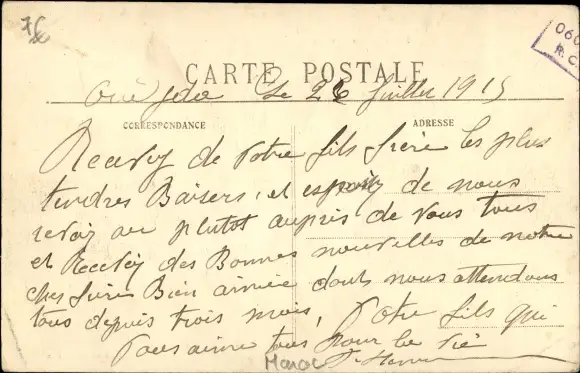 76
060
R.C.
CARTE POSTALE
Oudjda Le 26 Juillet 1915
CORRESPONDANCE
ADRESSE
Recevez de votre fils frère les plus
tendres Baisers, et espoir de nous
revoir au plutot auprès de vous tous
et Recevez des Bonnes nouvelles de notre
cher frère Bien aimée dont nous attendons
tous depuis trois mois, Votre fils qui
Vous aime tous pour la vie
Maroc